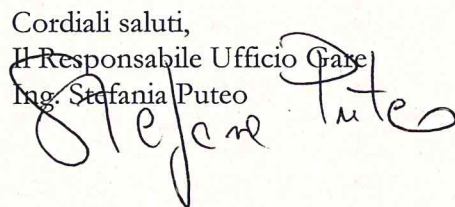 Cordiali saluti,
Il Responsabile Ufficio Gare
Ing. Stefania Puteo
Stefane Puteo